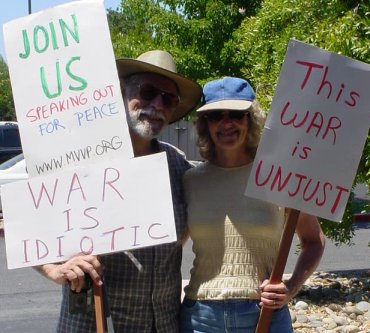 JOIN
US
SPEAKING OUT
FOR PEACE
WWW.MVVP.ORG
WAR
IS
IDIOTIC
This
WAR
is
UNJUST